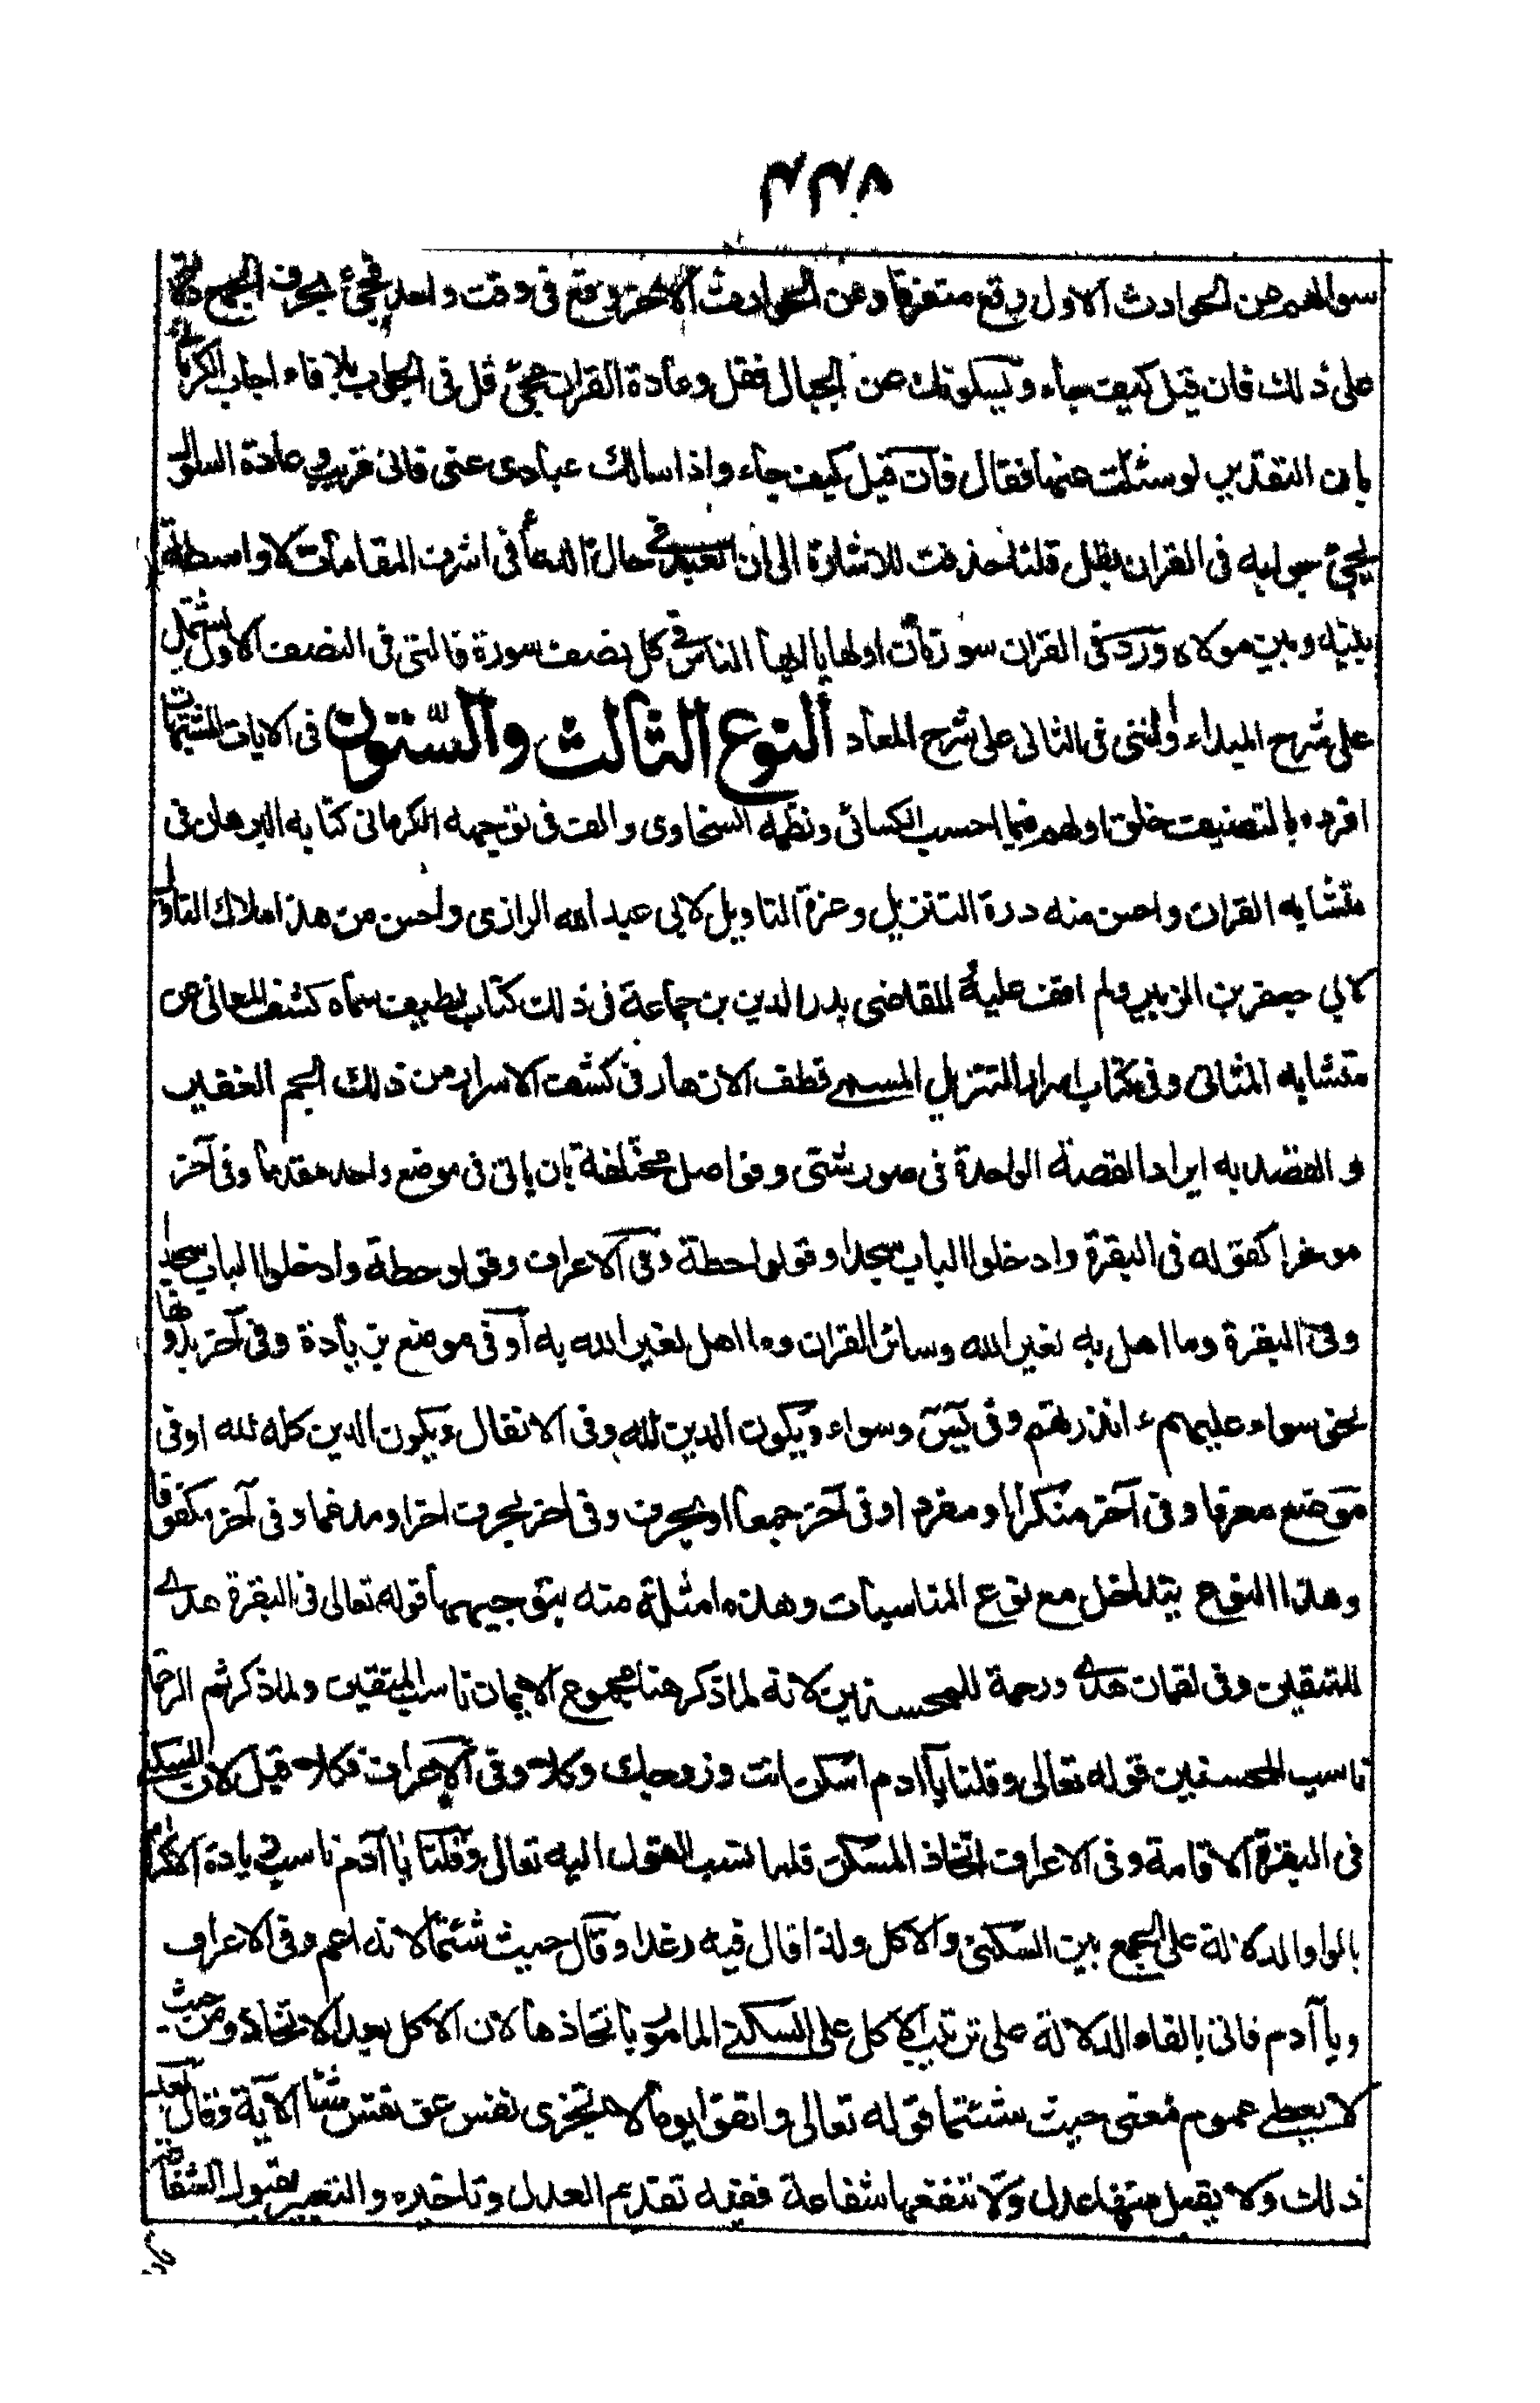 سوالهم عن الحوادث الاول وقع متفرقا وعن الحوادث الاخر وقع فى وقت واحد فجئ بحرف الجمع دلالة
على ذلك فان قيل كيف جاء ويسئلونك عن الجبال فقل وعادة القران مجئ قل فى الجواب بلا فاء اجاب الكرمانى
بان التقدير لو سئلت عنها فقال فان قيل كيف جاء واذا سالك عبادى عنى فانى قريب وعادة السوال
يجئ جوابه فى القران بقل قلنا حذفت للاشارة الى ان العبد فى حالة الدعاء فى اشرف المقامات لا واسطة
بينه وبين مولاه ورد فى القران سورتان اولهما يا ايها الناس فى كل نصف سورة فالتى فى النصف الاول يشتمل
على شرح المبداء والتى فى الثانى على شرح المعاد النوع الثالث والستون فى الايات المشتبهات
افرده بالتصنيف خلق اولهم فيما احسب الكسائى ونظمه السخاوى والف فى توجيهه الكرمانى كتابه البرهان فى
متشابه القران واحسن منه درة التنزيل وغرة التاويل لابى عبد الله الرازى واحسن من هذا ملاك التاويل
لابى جعفر بن الزبير ولم اقف عليه للقاضى بدر الدين بن جماعة فى ذلك كتاب لطيف سماه كشف المعانى عن
متشابه المثانى وفى كتاب اسرار التنزيل المسمى قطف الازهار فى كشف الاسرار من ذلك الجم الغفير
و القصد به ايراد القصة الواحدة فى صور شتى وفواصل مختلفة بان ياتى فى موضع واحد مقدما وفى آخر
موخرا كقوله فى البقرة وادخلوا الباب سجدا وقولوا حطة وفى الاعراف وقولوا حطة وادخلوا الباب سجدا
وفى البقرة وما اهل به لغير الله وسائر القران وما اهل لغير الله به او فى موضع بزيادة وفى آخر بدونها
نحو سواء عليهم ءانذرتهم وفى يس وسواء ويكون الدين لله وفى الانفال ويكون الدين كله لله او فى
موضع معرفا وفى آخر منكرا او مفردا وفى آخر جمعا او بحرف وفى اخر بحرف اخر او مدغما وفى آخر مفكوكا
وهذا النوع يتداخل مع نوع المناسبات وهذه امثلة منه بتوجيهها قوله تعالى فى البقرة هدى
للمتقين وفى لقمان هدى ورحمة للمحسنين لانه لما ذكر هنا مجموع الايمان ناسب المتقين ولما ذكر ثم الرحمة
ناسب المحسنين قوله تعالى وقلنا يا ادم اسكن انت وزوجك وكلا وفى الاعراف فكلا قيل لان السكنى
فى البقرة الاقامة وفى الاعراف اتخاذ المسكن فلما نسب القول اليه تعالى وقلنا يا آدم ناسب زيادة الاكرام
بالواو الدلالة على الجمع بين السكنى والاكل ولذا قال فيه رغدا وقال حيث شئتما لانه اعم وفى الاعراف
ويا آدم فاتى بالفاء الدلالة على ترتيب الاكل على السكنى المامور باتخاذها لان الاكل بعد الاتخاذ ومن حيث
لا يعطى عموم معنى حيث شئتما قوله تعالى واتقوا يوما لا تجزى نفس عن نفس شيئا الاية وقال بعد
ذلك ولا يقبل منها عدل ولا تنفعها شفاعة ففيه تقديم العدل وتاخيره والتعبير بقبول الشفاعة